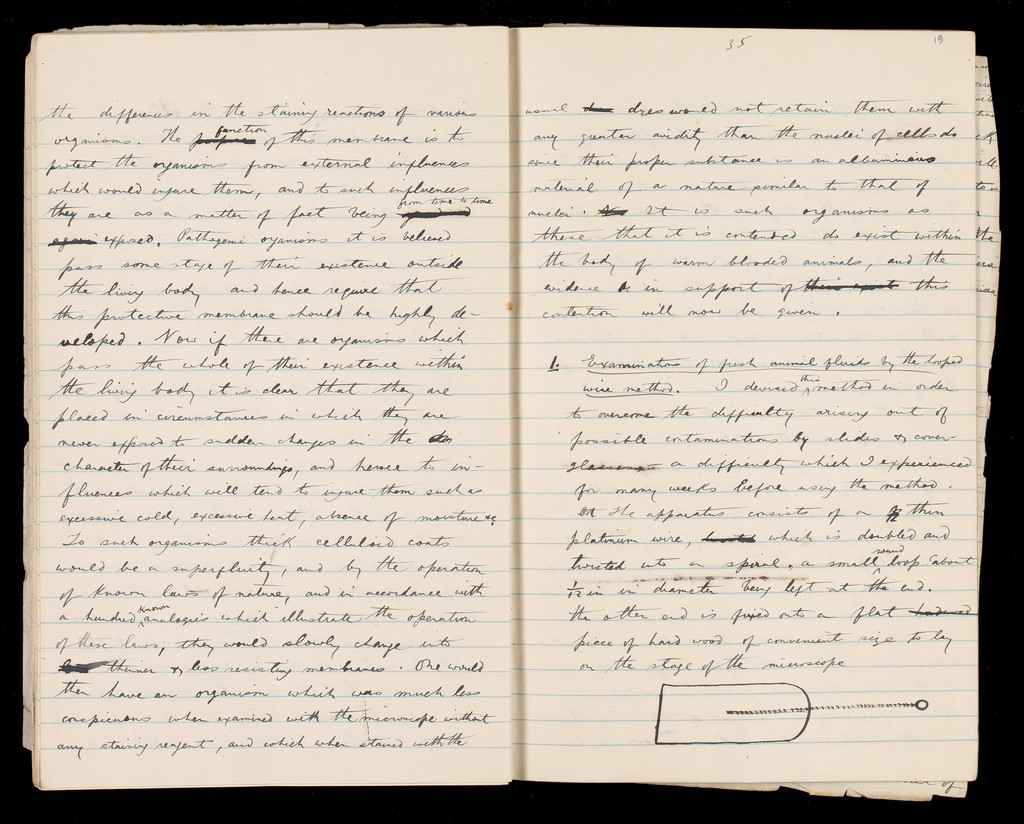 the differences in the staining reactions of various
organisms. The function of this membrane is to
protect the organisms from external influences
which would injure them, and to such influences
they are as a matter of fact being from time to time
exposed. Pathogenic organisms it is believed
pass some stage of their existence outside
the living body and hence require that
this protective membrane should be highly de-
veloped. Now if there are organisms which
pass the whole of their existence within
the living body it is clear that they are
placed in circumstances in which they are
never exposed to sudden changes in the
character of their surroundings, and hence to in-
fluences which will tend to injure them such as
excessive cold, excessive heat, absence of moisture &c.
To such organisms thick celluloid coats
would be a superfluity, and by the operation
of known laws of nature, and in accordance with
a hundred known analogies which illustrate the operation
of these laws, they would slowly change into
thinner & less resisting membranes. One would
then have an organism which was much less
conspicuous when examined with the microscope without
any staining reagent, and which when stained with the
35
19
usual dyes would not retain them with
any greater avidity than the nuclei of cells do
since their proper substance is an albuminous
material of a nature similar to that of
nuclei. It is such organisms as
these that it is contended do exist within
the body of warm blooded animals, and the
evidence in support of this
contention will now be given.
1. Examination of fresh animal fluids by the looped
wire method. I devised this method in order
to overcome the difficulty arising out of
possible contaminations by slides & cover-
glasses a difficulty which I experienced
for many weeks before using the method.
The apparatus consists of a thin
platinum wire, which is doubled and
twisted into a spiral, a small round loop (about
1/12 in in diameter being left at the end.
The other end is fixed onto a flat
piece of hard wood of convenient size to lay
on the stage of the microscope